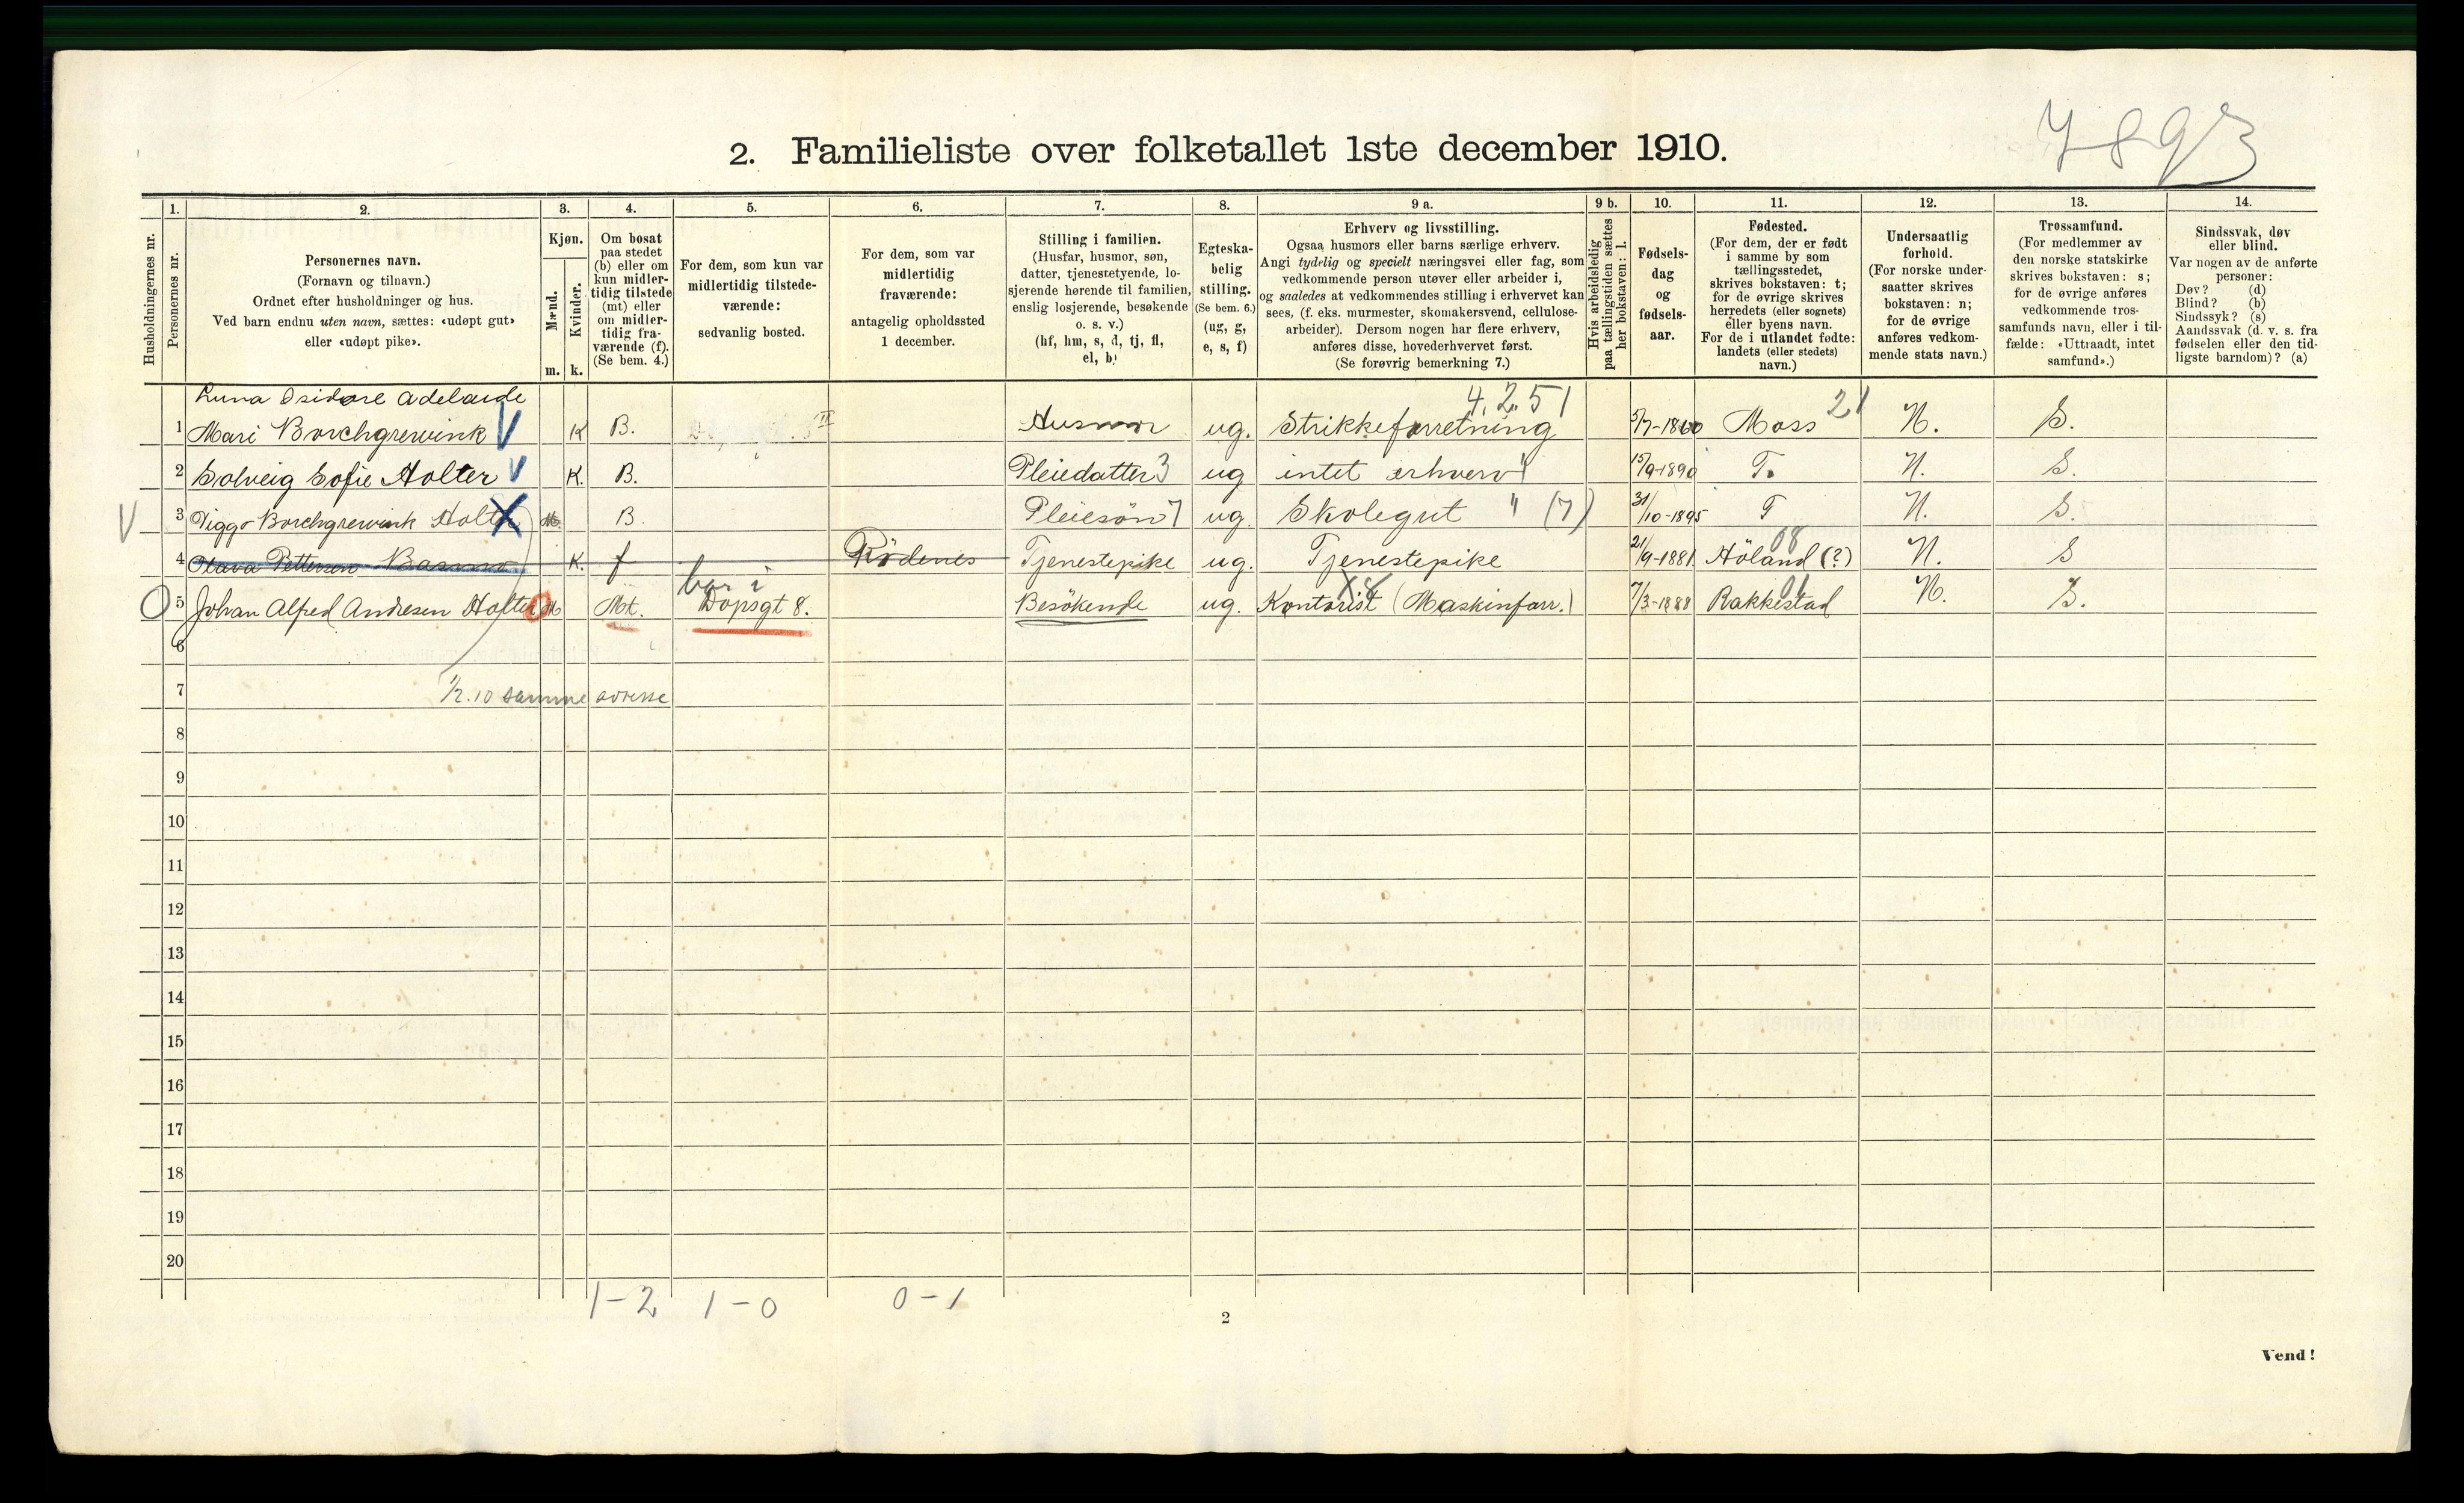 7893
2. Familieliste over folketallet 1ste december 1910.
Husholdningernes nr.
1.
Personernes nr.
2.
Personernes navn.
(Fornavn og tilnavn.)
Ordnet efter husholdninger og hus.
Ved barn endnu uten navn, sættes: «udøpt gut»
eller «udøpt pike».
3.
Kjøn.
Mænd.
Kvinder.
m. k.
4.
Om bosat
paa stedet
(b) eller om
kun midler-
tidig tilstede
(mt) eller
om midler-
tidig fra-
værende (f).
(Se bem. 4.)
5.
For dem, som kun var
midlertidig tilstede-
værende:
sedvanlig bosted.
6.
For dem, som var
midlertidig
fraværende:
antagelig opholdssted
1 december.
7.
Stilling i familien.
(Husfar, husmor, søn,
datter, tjenestetyende, lo-
sjerende hørende til familien,
enslig losjerende, besøkende
o. s. v.)
(hf, hm, s, d, tj, fl,
el, b)
8.
Egteska-
belig
stilling.
(Se bem. 6.)
(ug, g,
e, s, f)
9 a.
Erhverv og livsstilling.
Ogsaa husmors eller barns særlige erhverv.
Angi tydelig og specielt næringsvei eller fag, som
vedkommende person utøver eller arbeider i,
og saaledes at vedkommendes stilling i erhvervet kan
sees, (f. eks. murmester, skomakersvend, cellulose-
arbeider). Dersom nogen har flere erhverv,
anføres disse, hovederhvervet først.
(Se forøvrig bemerkning 7.)
9 b.
Hvis arbeidsledig
paa tællingstiden sættes
her bokstaven: l.
10.
Fødsels-
dag
og
fødsels-
aar.
11.
Fødested.
(For dem, der er født
i samme by som
tællingsstedet,
skrives bokstaven: t;
for de øvrige skrives
herredets (eller sognets)
eller byens navn.
For de i utlandet fødte:
landets (eller stedets)
navn.)
12.
Undersaatlig
forhold.
(For norske under-
saatter skrives
bokstaven: n;
for de øvrige
anføres vedkom-
mende stats navn.)
13.
Trossamfund.
(For medlemmer av
den norske statskirke
skrives bokstaven: s;
for de øvrige anføres
vedkommende tros-
samfunds navn, eller i til-
fælde: «Uttraadt, intet
samfund».)
14.
Sindssvak, døv
eller blind.
Var nogen av de anførte
personer:
Døv? (d)
Blind? (b)
Sindssyk? (s)
Aandssvak (d. v. s. fra
fødselen eller den tid-
ligste barndom)? (a)
Luna Isidore Adelaide 4.2.51 21
1 Mari Borchgrevink V K B. Husmor ug. Strikkeforretning 5/7-1860 Moss N. S.
2 Solveig Sofie Holter V K. B. Pleiedatter 3 ug intet erhverv " 15/9-1890 T. N. S.
V 3 Viggo Borchgrevink Holter X M. B. Pleiesøn 7 ug. Skolegut " (7) 31/10-1895 T N. S.
08
4 Olava Pettersen Basmo K. f Rödenes Tjenestepike ug. Tjenestepike 21/9-1881 Höland (?) N. S
bor i X8 01
O 5 Johan Alfred Andresen Holter M Mt. Dopsgt 8. Besökende ug. Kontorist (Maskinforr.) 7/3-1888 Rakkestad N. S.
6
7 1/2.10 samme adresse
8
9
10
11
12
13
14
15
16
17
18
19
20
1-2 1-0 0-1
2
Vend!